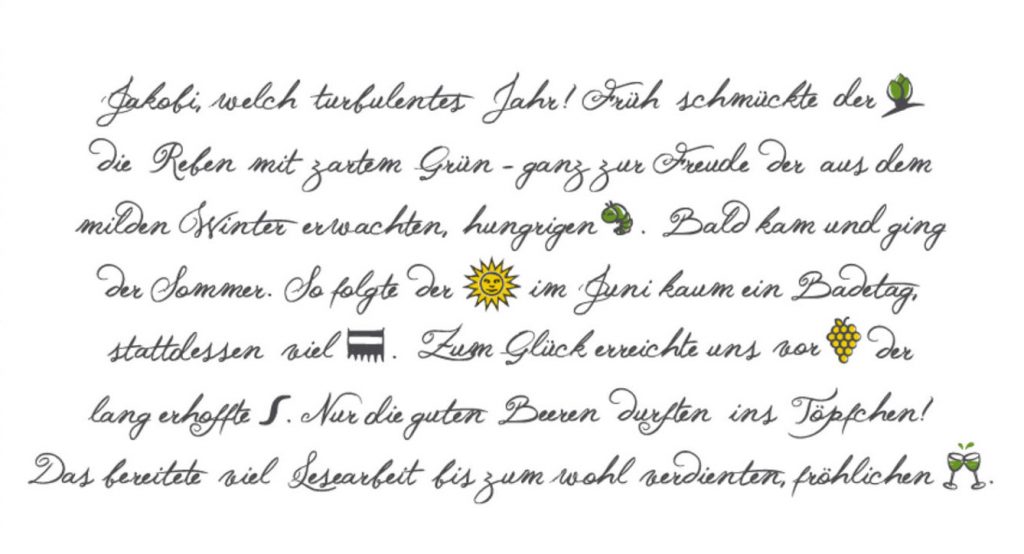 Jakobi, welch turbulentes Jahr! Früh schmückte der
die Reben mit zartem Grün - ganz zur Freude der aus dem
milden Winter erwachten, hungrigen . Bald kam und ging
der Sommer. So folgte der im Juni kaum ein Badetag,
stattdessen viel . Zum Glück erreichte uns vor der
lang erhoffte . Nur die guten Beeren durften ins Töpfchen!
Das bereitete viel Lesearbeit bis zum wohl verdienten, fröhlichen .